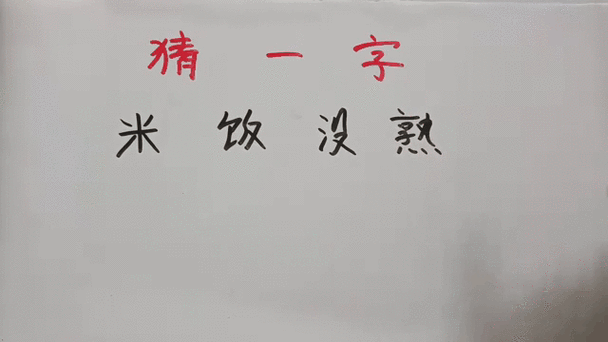 猜一字
米饭没熟